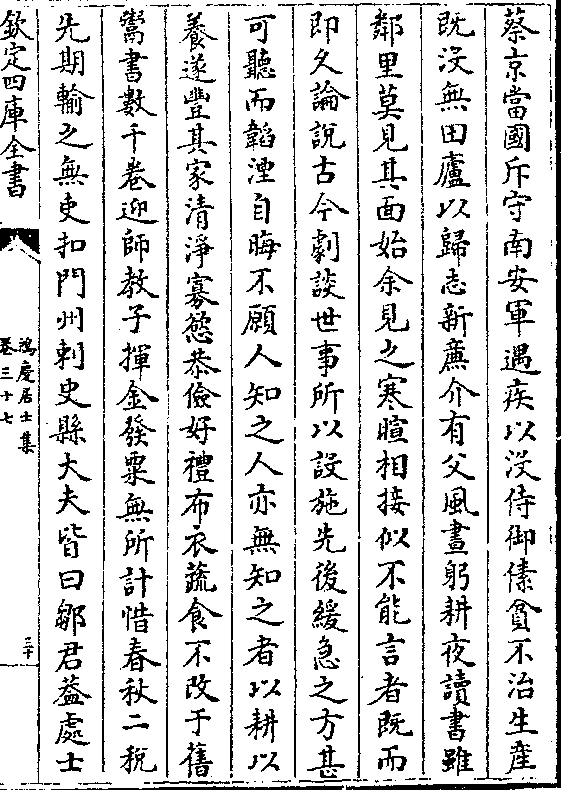 蔡京當國斥守南安軍遇疾以没侍御傃貧不治生產
既没無田廬以歸志新亷介有父風晝躬耕夜讀書雖
鄰里莫見其面始余見之寒暄相接似不能言者既而
即久論說古今劇談世事所以設施先後緩急之方甚
可聽而韜湮自晦不願人知之人亦無知之者以耕以
養遂豐其家清淨寡慾恭儉好禮布衣蔬食不改于舊
鬻書數千巻迎師教子揮金發粟無所計惜春秋二税
先期輸之無吏扣門州刺史縣大夫皆曰鄒君葢處士
欽定四庫全書
鴻慶居士集
巻三十七
三十